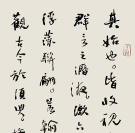 其始也皆收視
群言之瀝液漱六
浮藻聯翩若翰
觀古今於須臾